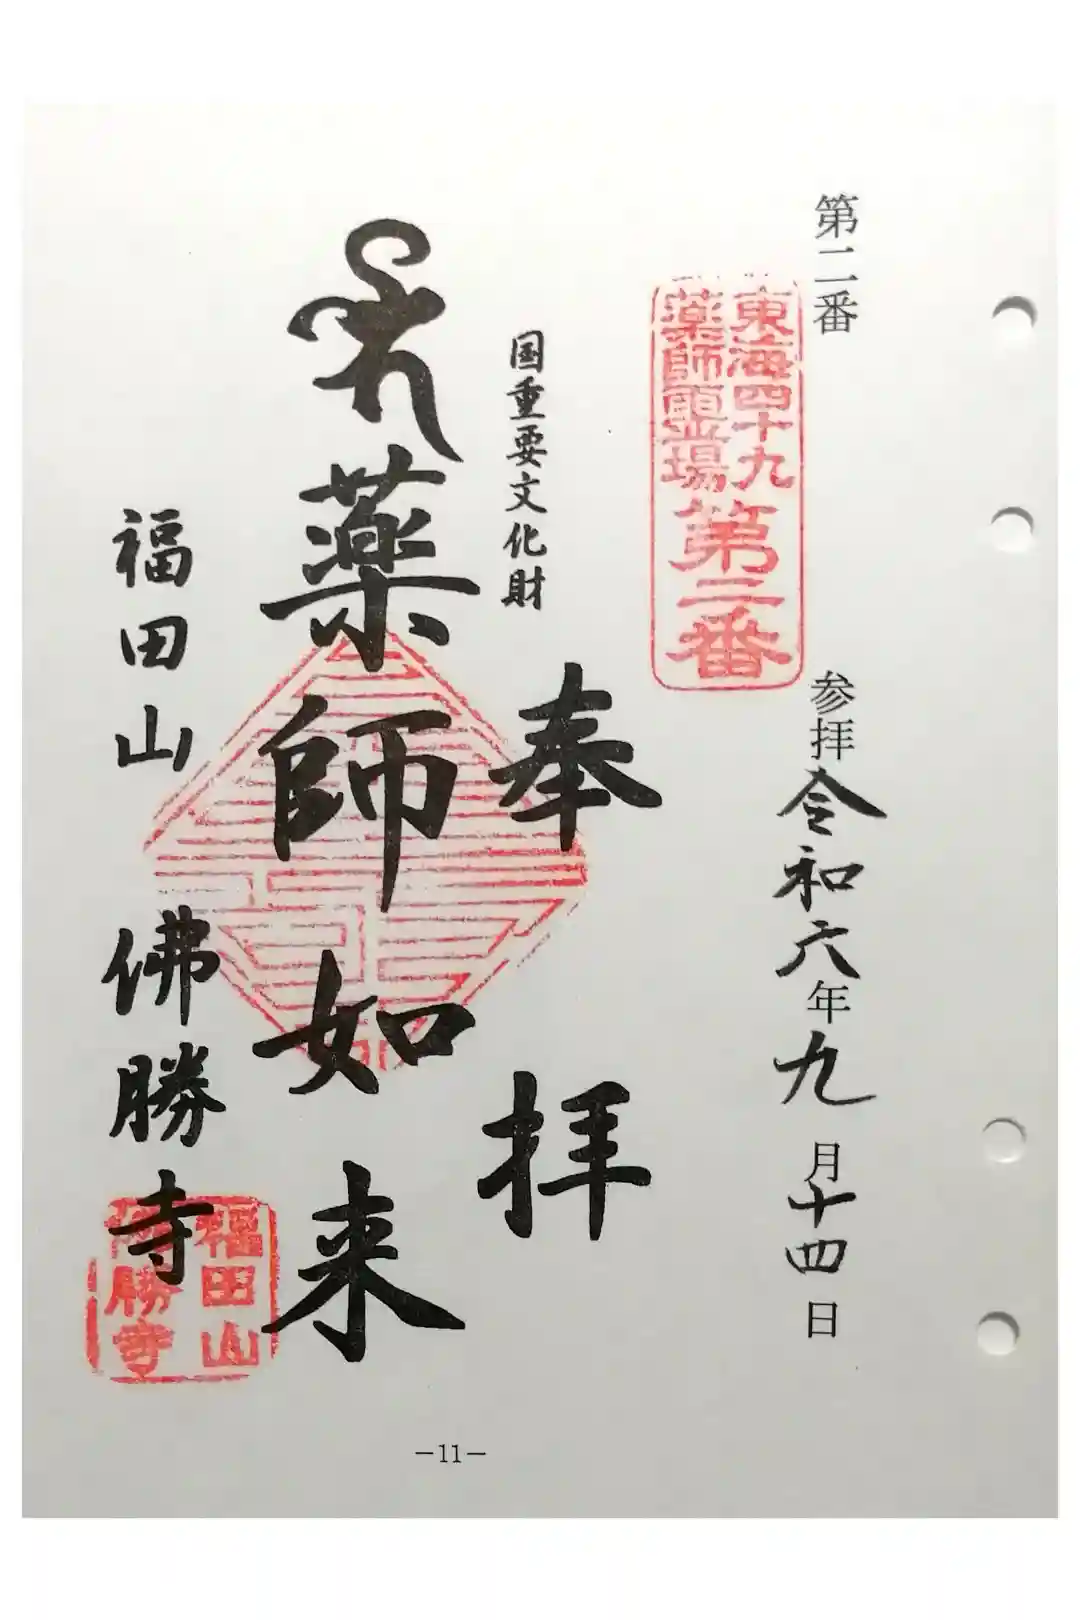 第二番
参拝 令和六年九月十四日
東海四十九
薬師霊場
第二番
奉拝
国重要文化財
薬師如来
福田山 佛勝寺
福田山
佛勝寺
－11－